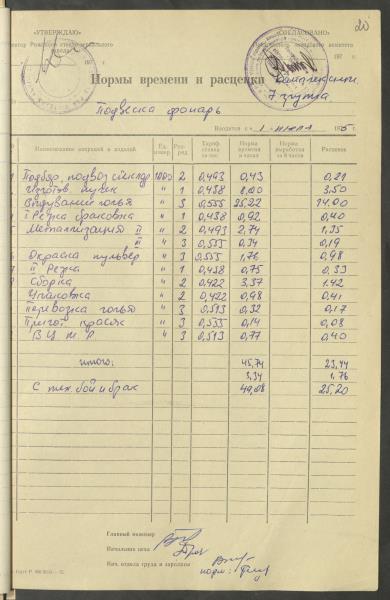 20
«УТВЕРЖДАЮ» «СОГЛАСОВАНО»
197 г. 197 г.
Нормы времени и расценки
7 группа
Подвеска фонарь
Вводятся с « 1 » 197
Наименование операций и изделий Ед. измер. Раз-ряд Тариф. ставка за час Норма времени в часах Норма выработки за 8 часов Расценок
1000 2 0,493 0,43 0,21
Изготов. пулек " 1 0,438 8,00 3,50
Выдувание " 3 0,555 25,22 14.00
I Резка " 1 0,438 0,92 0,40
Металлизация II " 2 0,493 2,74 1,35
" " 3 0,555 0,34 0,19
Окраска пульвер " 3 0,555 1,76 0,98
II Резка " 1 0,438 0,75 0,33
Сборка " 2 0,422 3,37 1.42
Упаковка " 2 0,422 0,98 0,41
Перевозка " 3 0,513 0,32 0,17
Пригот. красок " 3 0,555 0,14 0,08
В Ц М Р " 3 0,513 0,77 0,40
итого: 45,74 23,44
3,34 1,76
С тех. бой и брак 49,08 25,20
Главный инженер
Начальник цеха
Нач. отдела труда и зарплаты